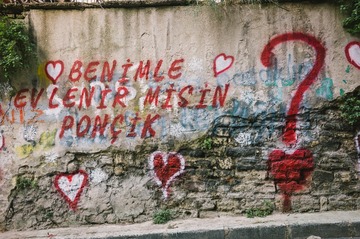 BENİMLE
EVLENİR MİSİN
PONÇİK
?